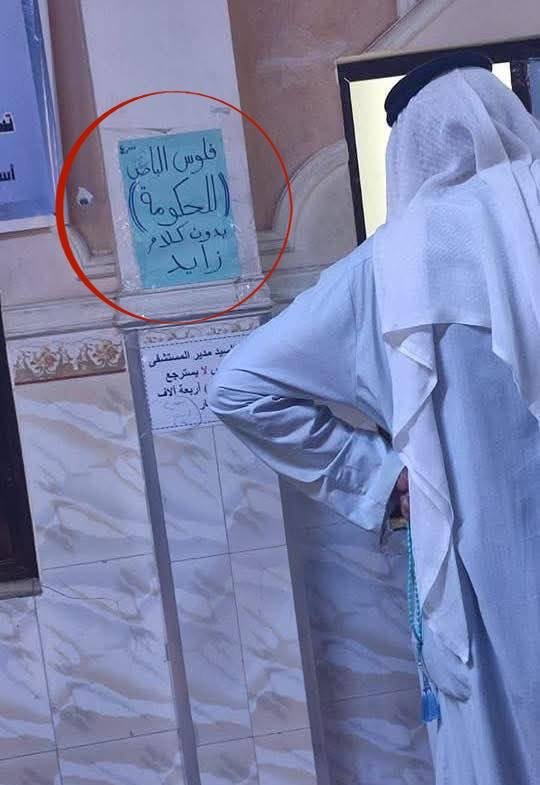 فلوس الباص
((للحكومة))
بدون كلام
زايد
السيد مدير المستشفى
لا يسترجع
) أربعة آلاف